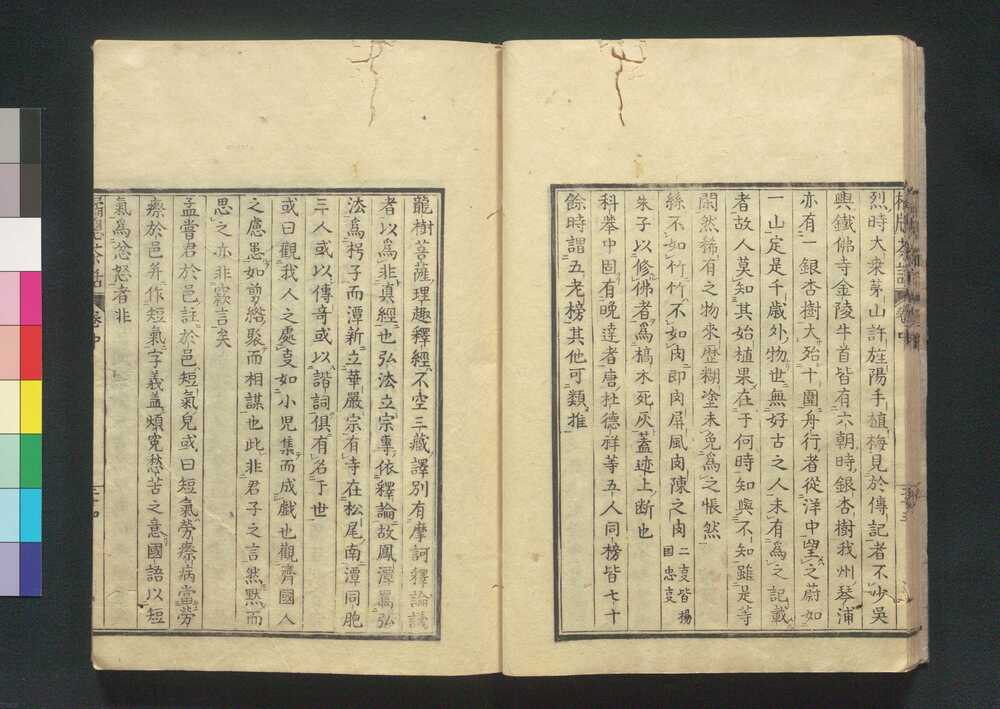 烈時大衆茅山許旌陽手植梅見於傳記者不少吳
與鐵佛寺金陵牛首皆有六朝時銀杏樹我州琴浦
亦有一銀杏樹大殆十圍舟行者從洋中望之蔚如
一山定是千歲外物世無好古之人未有爲之記載
者故人莫知其始植果在于何時知與不知雖是等
閒然稀有之物來歷糊塗未免爲之悵然
絲不如竹竹不如肉即肉屏風肉陳之肉二叓皆楊
國忠叓
朱子以修佛者爲槁木死灰蓋迹上斷也
科擧中固有晚達者唐杜德祥等五人同榜皆七十
餘時謂五老榜其他可類推
龍樹菩薩理趣釋經不空三藏譯別有摩訶釋論議
者以爲非眞經也弘法立宗專依釋論故鳳潭罵弘
法爲拐子而潭新立華嚴宗有寺在松尾南潭同胞
三人或以傳奇或以諧詞俱有名于世
或曰觀我人之處叓如小児集而成戯也觀齊國人
之慮患如剪綹聚而相謀也此非君子之言然默而
思之亦非窾言矣
孟嘗君於邑註於邑短氣皃或曰短氣勞瘵病當勞
瘵於邑并作短氣字義蓋煩寃愁苦之意國語以短
氣爲忿怒者非